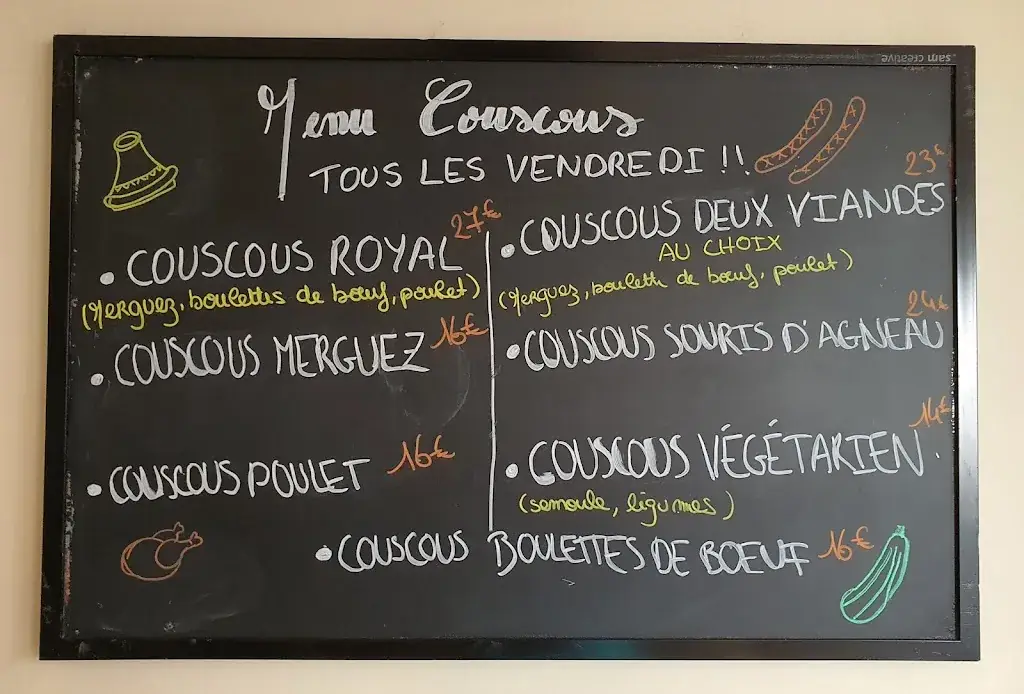 sam creative
Menu Couscous
TOUS LES VENDREDI !!
27€
• COUSCOUS ROYAL
(Merguez, boulettes de bœuf, poulet)
16€
• COUSCOUS MERGUEZ
16€
• COUSCOUS POULET
23€
• COUSCOUS DEUX VIANDES
AU CHOIX
(Merguez, boulette de bœuf, poulet)
24€
• COUSCOUS SOURIS D'AGNEAU
14€
• COUSCOUS VÉGÉTARIEN.
(semoule, légumes)
• COUSCOUS BOULETTES DE BOEUF 16€